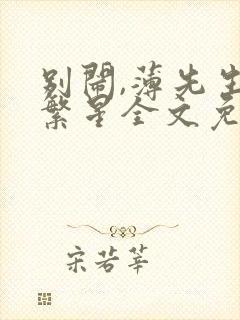 别闹,薄先生
繁星全文免
宋若莘